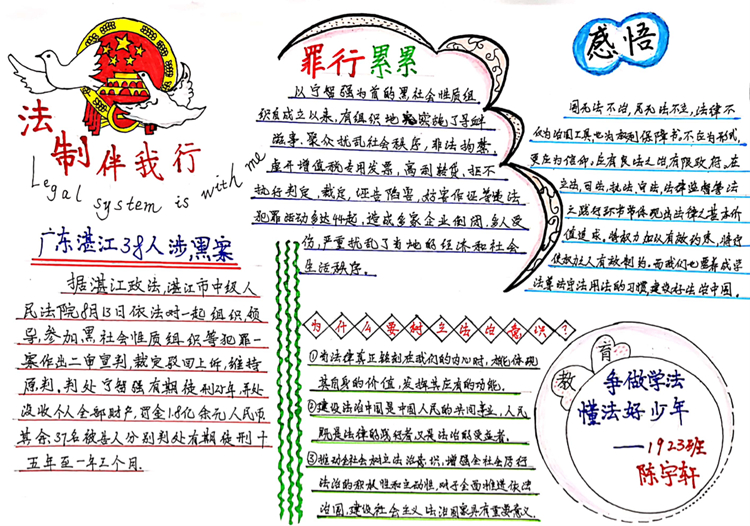 法制伴我行
Legal system is with me
广东湛江38人涉黑案
据湛江政法,湛江市中级人
民法院8月13日依法对一起组织、领
导、参加黑社会性质组织等犯罪一
案作出二审宣判,裁定驳回上诉,维持
原判,判处宁智强有期徒刑25年,并处
没收个人全部财产,罚金1.8亿余元人民币
其余37名被告人分别判处有期徒刑十
五年至一年三个月.
罪行累累
以宁智强为首的黑社会性质组
织自成立以来,有组织地实施了寻衅
滋事、聚众扰乱社会秩序,非法拘禁,
虚开增值税专用发票,高利转贷,拒不
执行判定,裁定,诬告陷害,妨害作证等违法
犯罪活动多达44起,造成多家企业倒闭,多人受
伤,严重扰乱了当地的经济和社会
生活秩序.
为什么要树立法治意识?
①当法律真正铭刻在我们的内心时,才能体现
其自身的价值,发挥其应有的功能.
②建设法治中国是中国人民的共同事业,人民
既是法律的践行者,又是法治的受益者.
③推动全社会树立法治意识,增强全社会厉行
法治的积极性和主动性,对于全面推进依法
治国,建设社会主义法治国家具有重要意义.
感悟
国无法不治,民无法不立,法律不
仅为治国工具,也为权利保障书,不应为形式,
更应为信仰,应有良法之治有限政府,在
立法,司法,执法,守法,法律监督等法
治路径环节中体现出法律之基本价
值追求,将权力加以有效约束,将行
使权力人有效制约,而我们也要养成学
法尊法守法用法的习惯,建设好法治中国.
教育
争做学法
懂法好少年
——1923班
陈宇轩